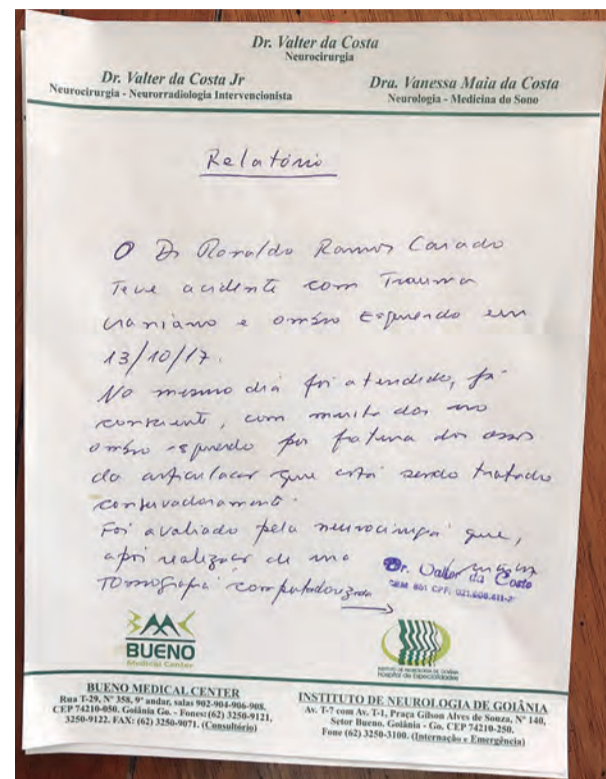 Dr. Valter da Costa
Neurocirurgia
Dr. Valter da Costa Jr
Neurocirurgia - Neurorradiologia Intervencionista
Dra. Vanessa Maia da Costa
Neurologia - Medicina do Sono
Relatório
O Dr Ronaldo Ramos Caiado
Teve acidente com Trauma
craniano e ombro esquerdo em
13/10/17.
No mesmo dia foi atendido, já
consciente, com muita dor no
ombro esquerdo por fratura dos ossos
da articulacao que está sendo tratado
conservadoramente.
Foi avaliado pela neurocirurgia que,
após realização de uma
Tomografia computadorizada
Dr. Valter da Costa
CRM 801 CPF: 021.608.411-2
BUENO
Medical Center
INSTITUTO DE NEUROLOGIA DE GOIÂNIA
Hospital de Especialidades
BUENO MEDICAL CENTER
Rua T-29, N° 358, 9° andar, salas 902-904-906-908.
CEP 74210-050. Goiânia Go. - Fones: (62) 3250-9121,
3250-9122. FAX: (62) 3250-9071. (Consultório)
INSTITUTO DE NEUROLOGIA DE GOIÂNIA
Av. T-7 com Av. T-1, Praça Gilson Alves de Souza, N° 140,
Setor Bueno. Goiânia - Go. CEP 74210-250.
Fone (62) 3250-3100. (Internação e Emergência)